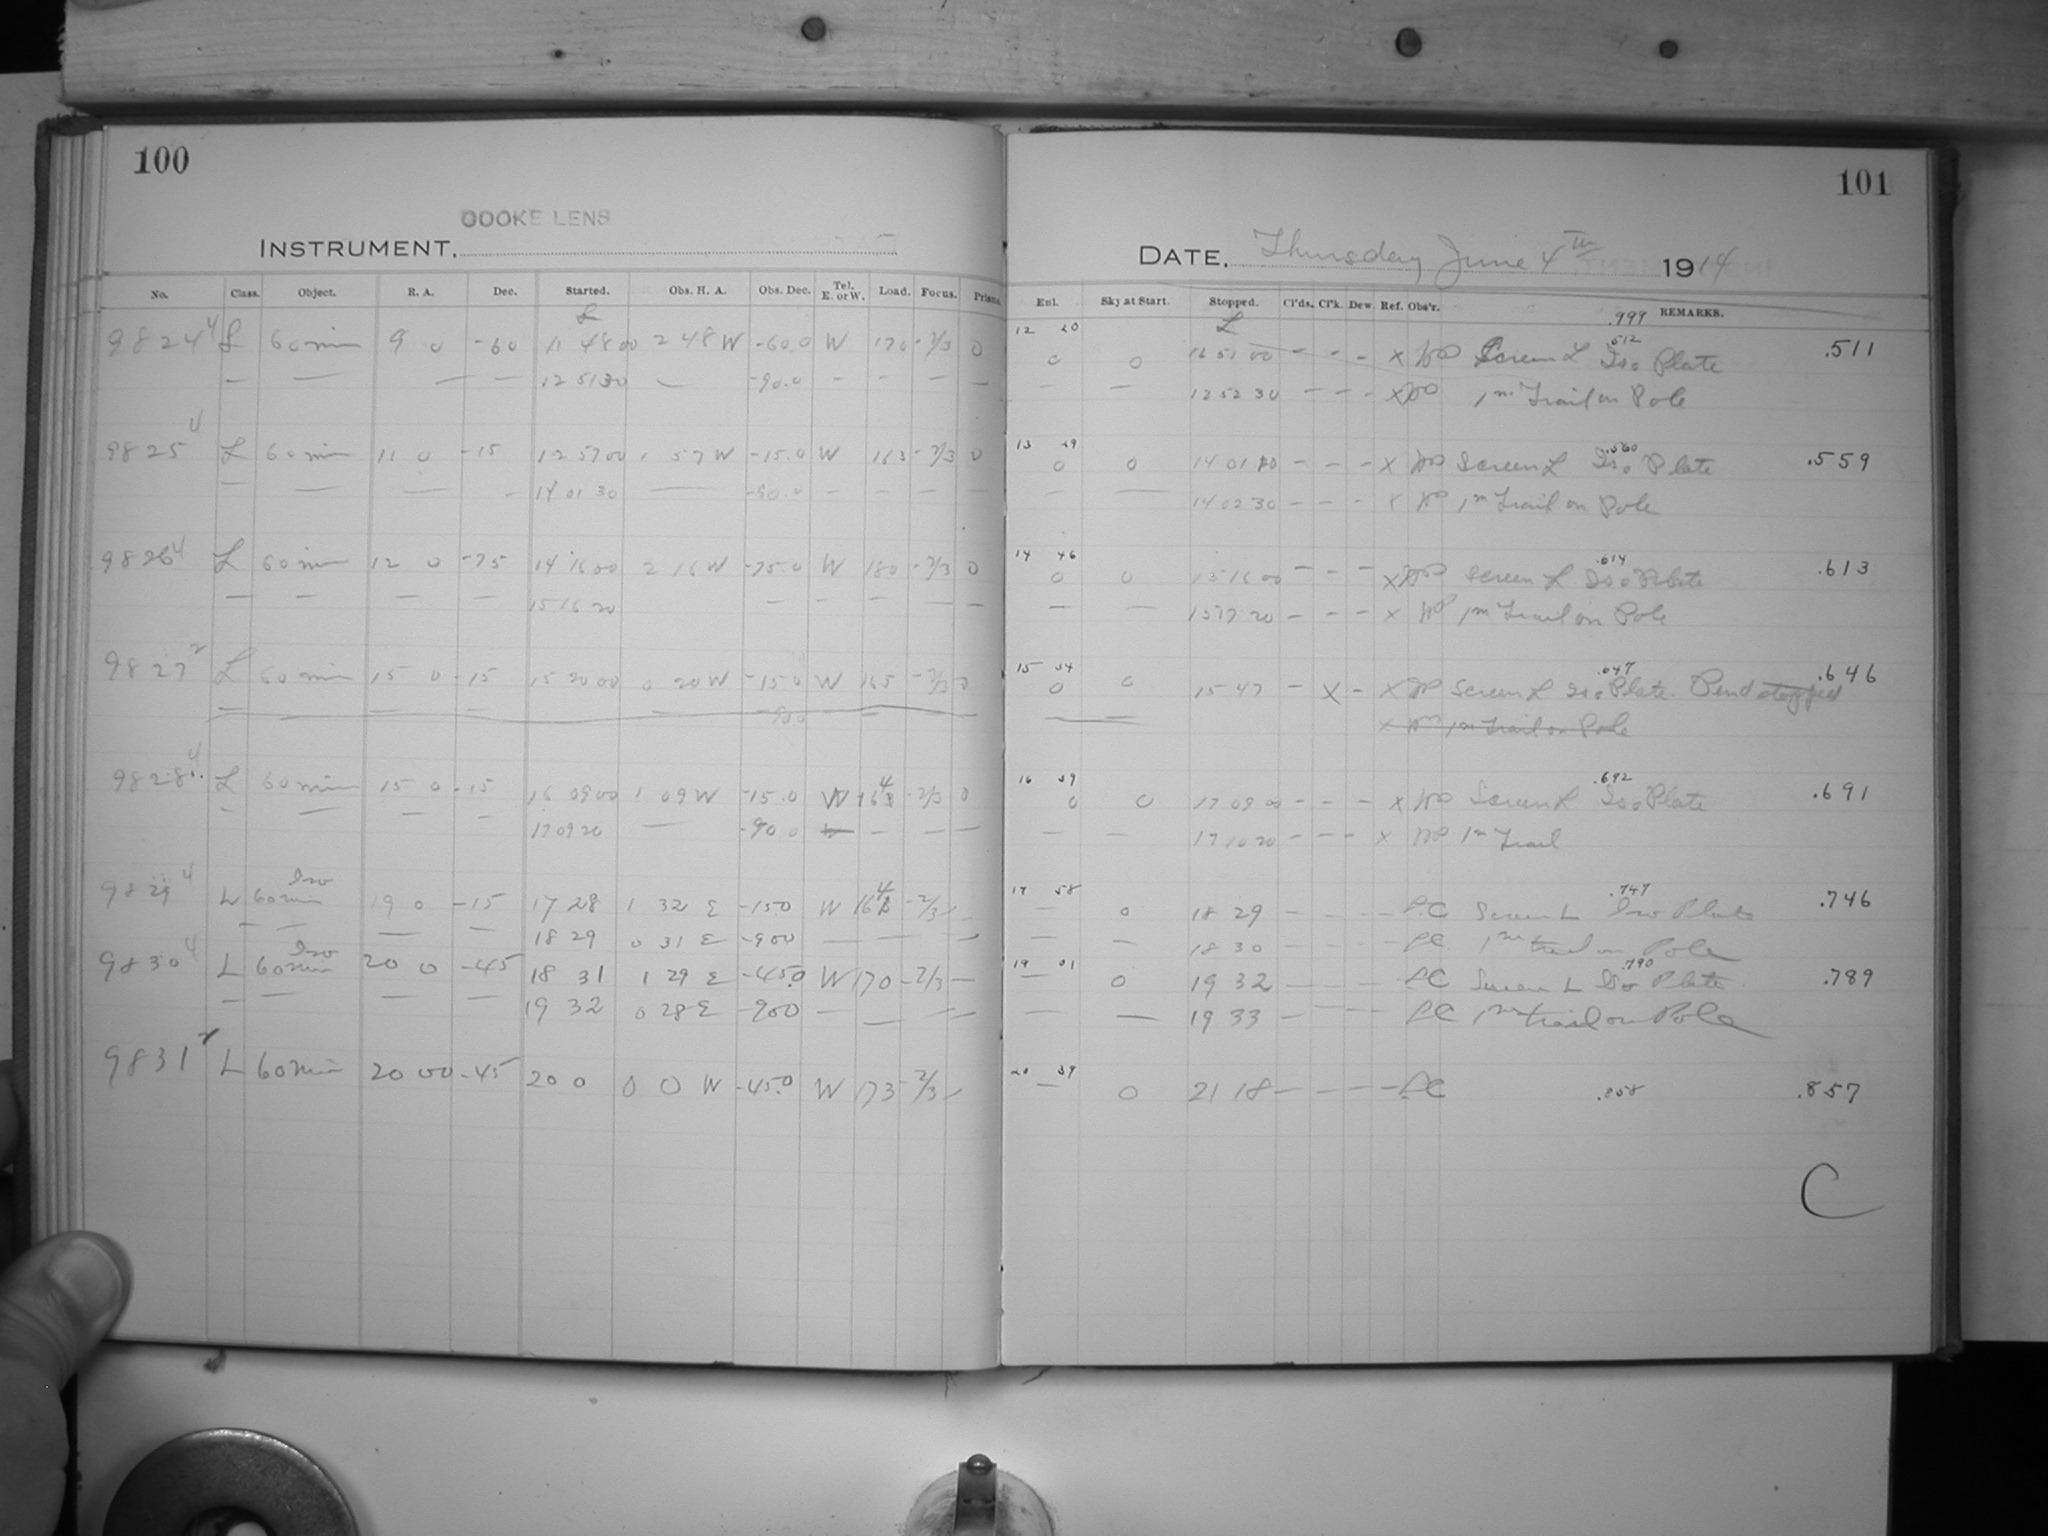 100
COOKE LENS
INSTRUMENT,
No. Class. Object. R. A. Dec. Started. Obs. H. A. Obs. Dec. Tel. E. or W. Load. Focus. Prism.
9824 4 L 60 min 9 0 -60 11 48 00 2 48 W -60.0 W 170 -2/3 0
— — — — 12 51 30 — -90.0 — — — —
9825 4 L 60 min 11 0 -15 12 57 00 1 57 W -15.0 W 163 -2/3 0
— — — — 14 01 30 — -90.0 — — — —
9826 4 L 60 min 12 0 -75 14 16 00 2 16 W -75.0 W 180 -2/3 0
— — — — 15 16 20 — — — — —
9827 2 L 60 min 15 0 -15 15 20 00 0 20 W -15.0 W 165 -2/3 0
— — — — — -90.0 — — —
9828 4 L 60 min 15 0 -15 16 09 00 1 09 W -15.0 W 164 -2/3 0
— — — — 17 09 20 — -90.0 W — — —
9829 4 L Iso 60 min 19 0 -15 17 28 1 32 E -15.0 W 164 -2/3 —
— — — — 18 29 0 31 E -90.0 — — — —
9830 4 L Iso 60 min 20 0 -45 18 31 1 29 E -45.0 W 170 -2/3 —
— — — — 19 32 0 28 E -90.0 — — — —
9831 L 60 min 20 00 -45 20 0 0 0 W -45.0 W 173 -2/3 —
101
DATE, Thursday June 4th 1914
Enl. Sky at Start. Stopped. Cl'ds. Cl'k. Dew. Ref. Obs'r. REMARKS.
.999
12 20
0 0 12 51 00 - - - x Screen L Iso Plate .512 .511
— — 12 52 30 - - - x 1m Trail on Pole
13 29
0 0 14 01 - - - x Screen L Iso Plate .560 .559
— — 14 02 30 - - - x 1m Trail on Pole
14 46
0 0 15 16 00 - - - x Screen L Iso Plate .614 .613
— — 15 17 20 - - - x 1m Trail on Pole
15 34
0 0 15 47 - x - x Screen L Iso Plate. Pend stopped .647 .646
— — x 1m Trail on Pole
16 39
0 0 17 09 00 - - - x Screen L Iso Plate .692 .691
— — 17 10 20 - - - x 1m Trail
17 58
— 0 18 29 - - - - L.C Screen L Iso Plate .747 .746
— — 18 30 - - - - L.C. 1m trail on Pole
19 01
— 0 19 32 - - - - L.C Screen L Iso Plate .790 .789
— — 19 33 - - - - L.C 1m trail on Pole
20 39
— 0 21 18 - - - - L.C .858 .857
C